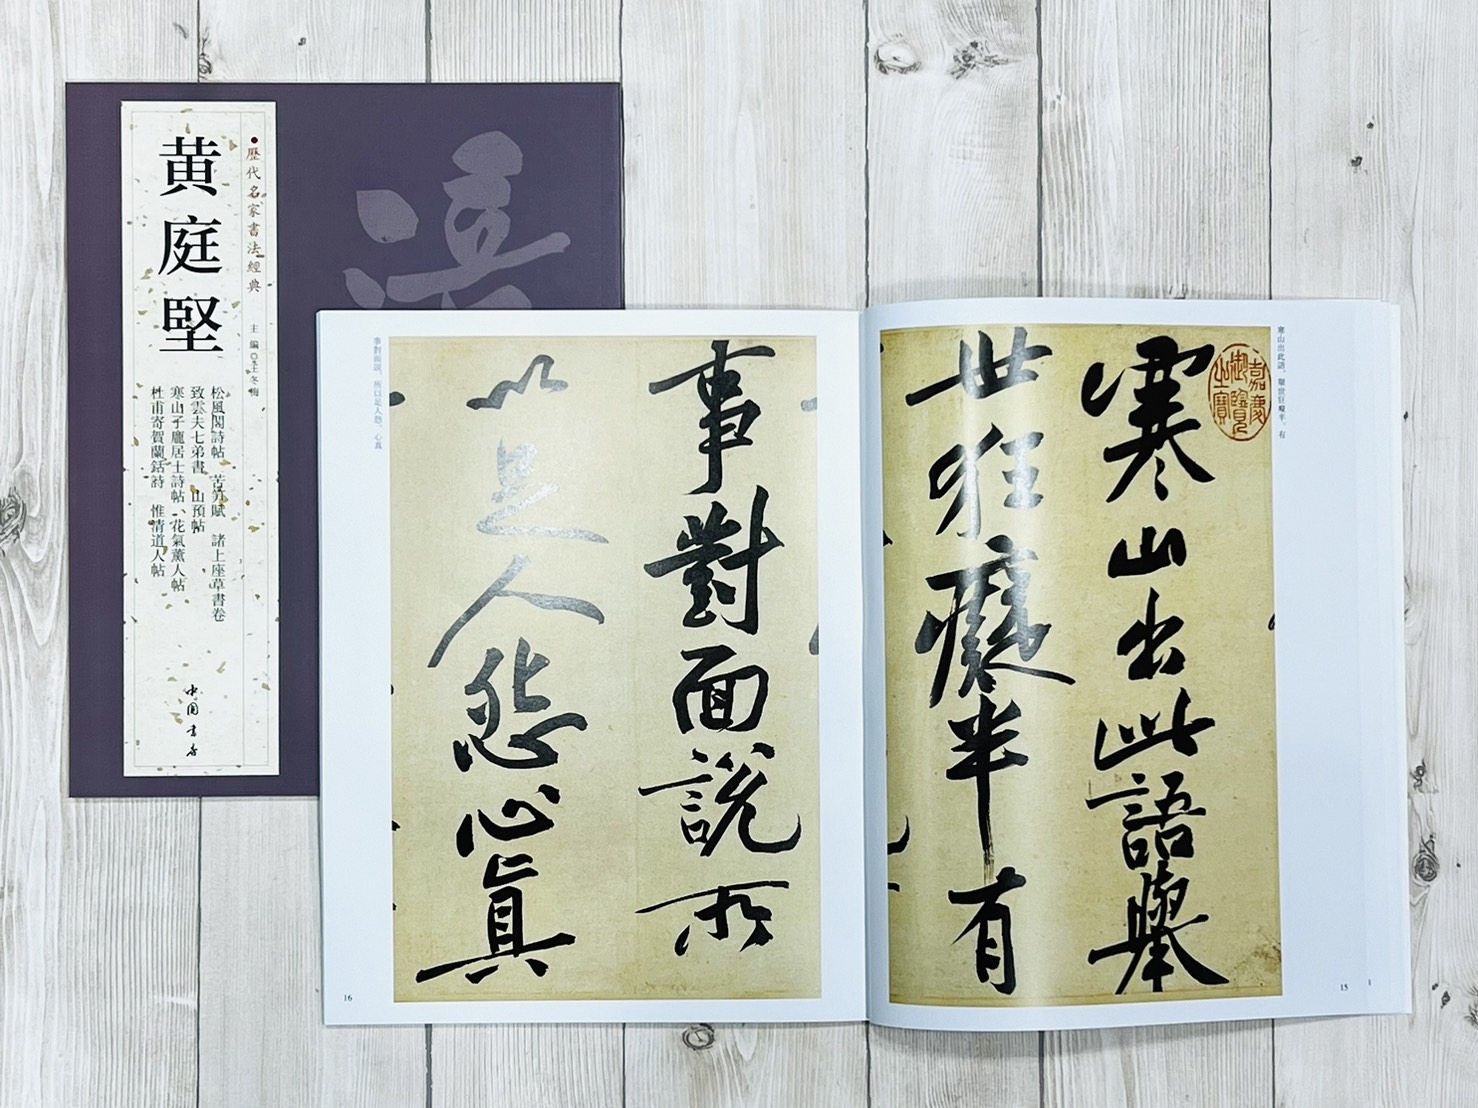 歷代名家書法經典
主編 王冬梅
黄庭堅
松風閣詩帖 苦笋賦 諸上座草書卷
致雲夫七弟書 山預帖
寒山子龐居士詩帖 花氣薰人帖
杜甫寄賀蘭銛詩 惟清道人帖
中国书店
寒山出此語、舉世狂癡半。有
嘉慶御覽之寶
寒山出此語舉
世狂癡半有
15
事對面說、所以足人怨。心真
事對面說所
以足人怨心真
16